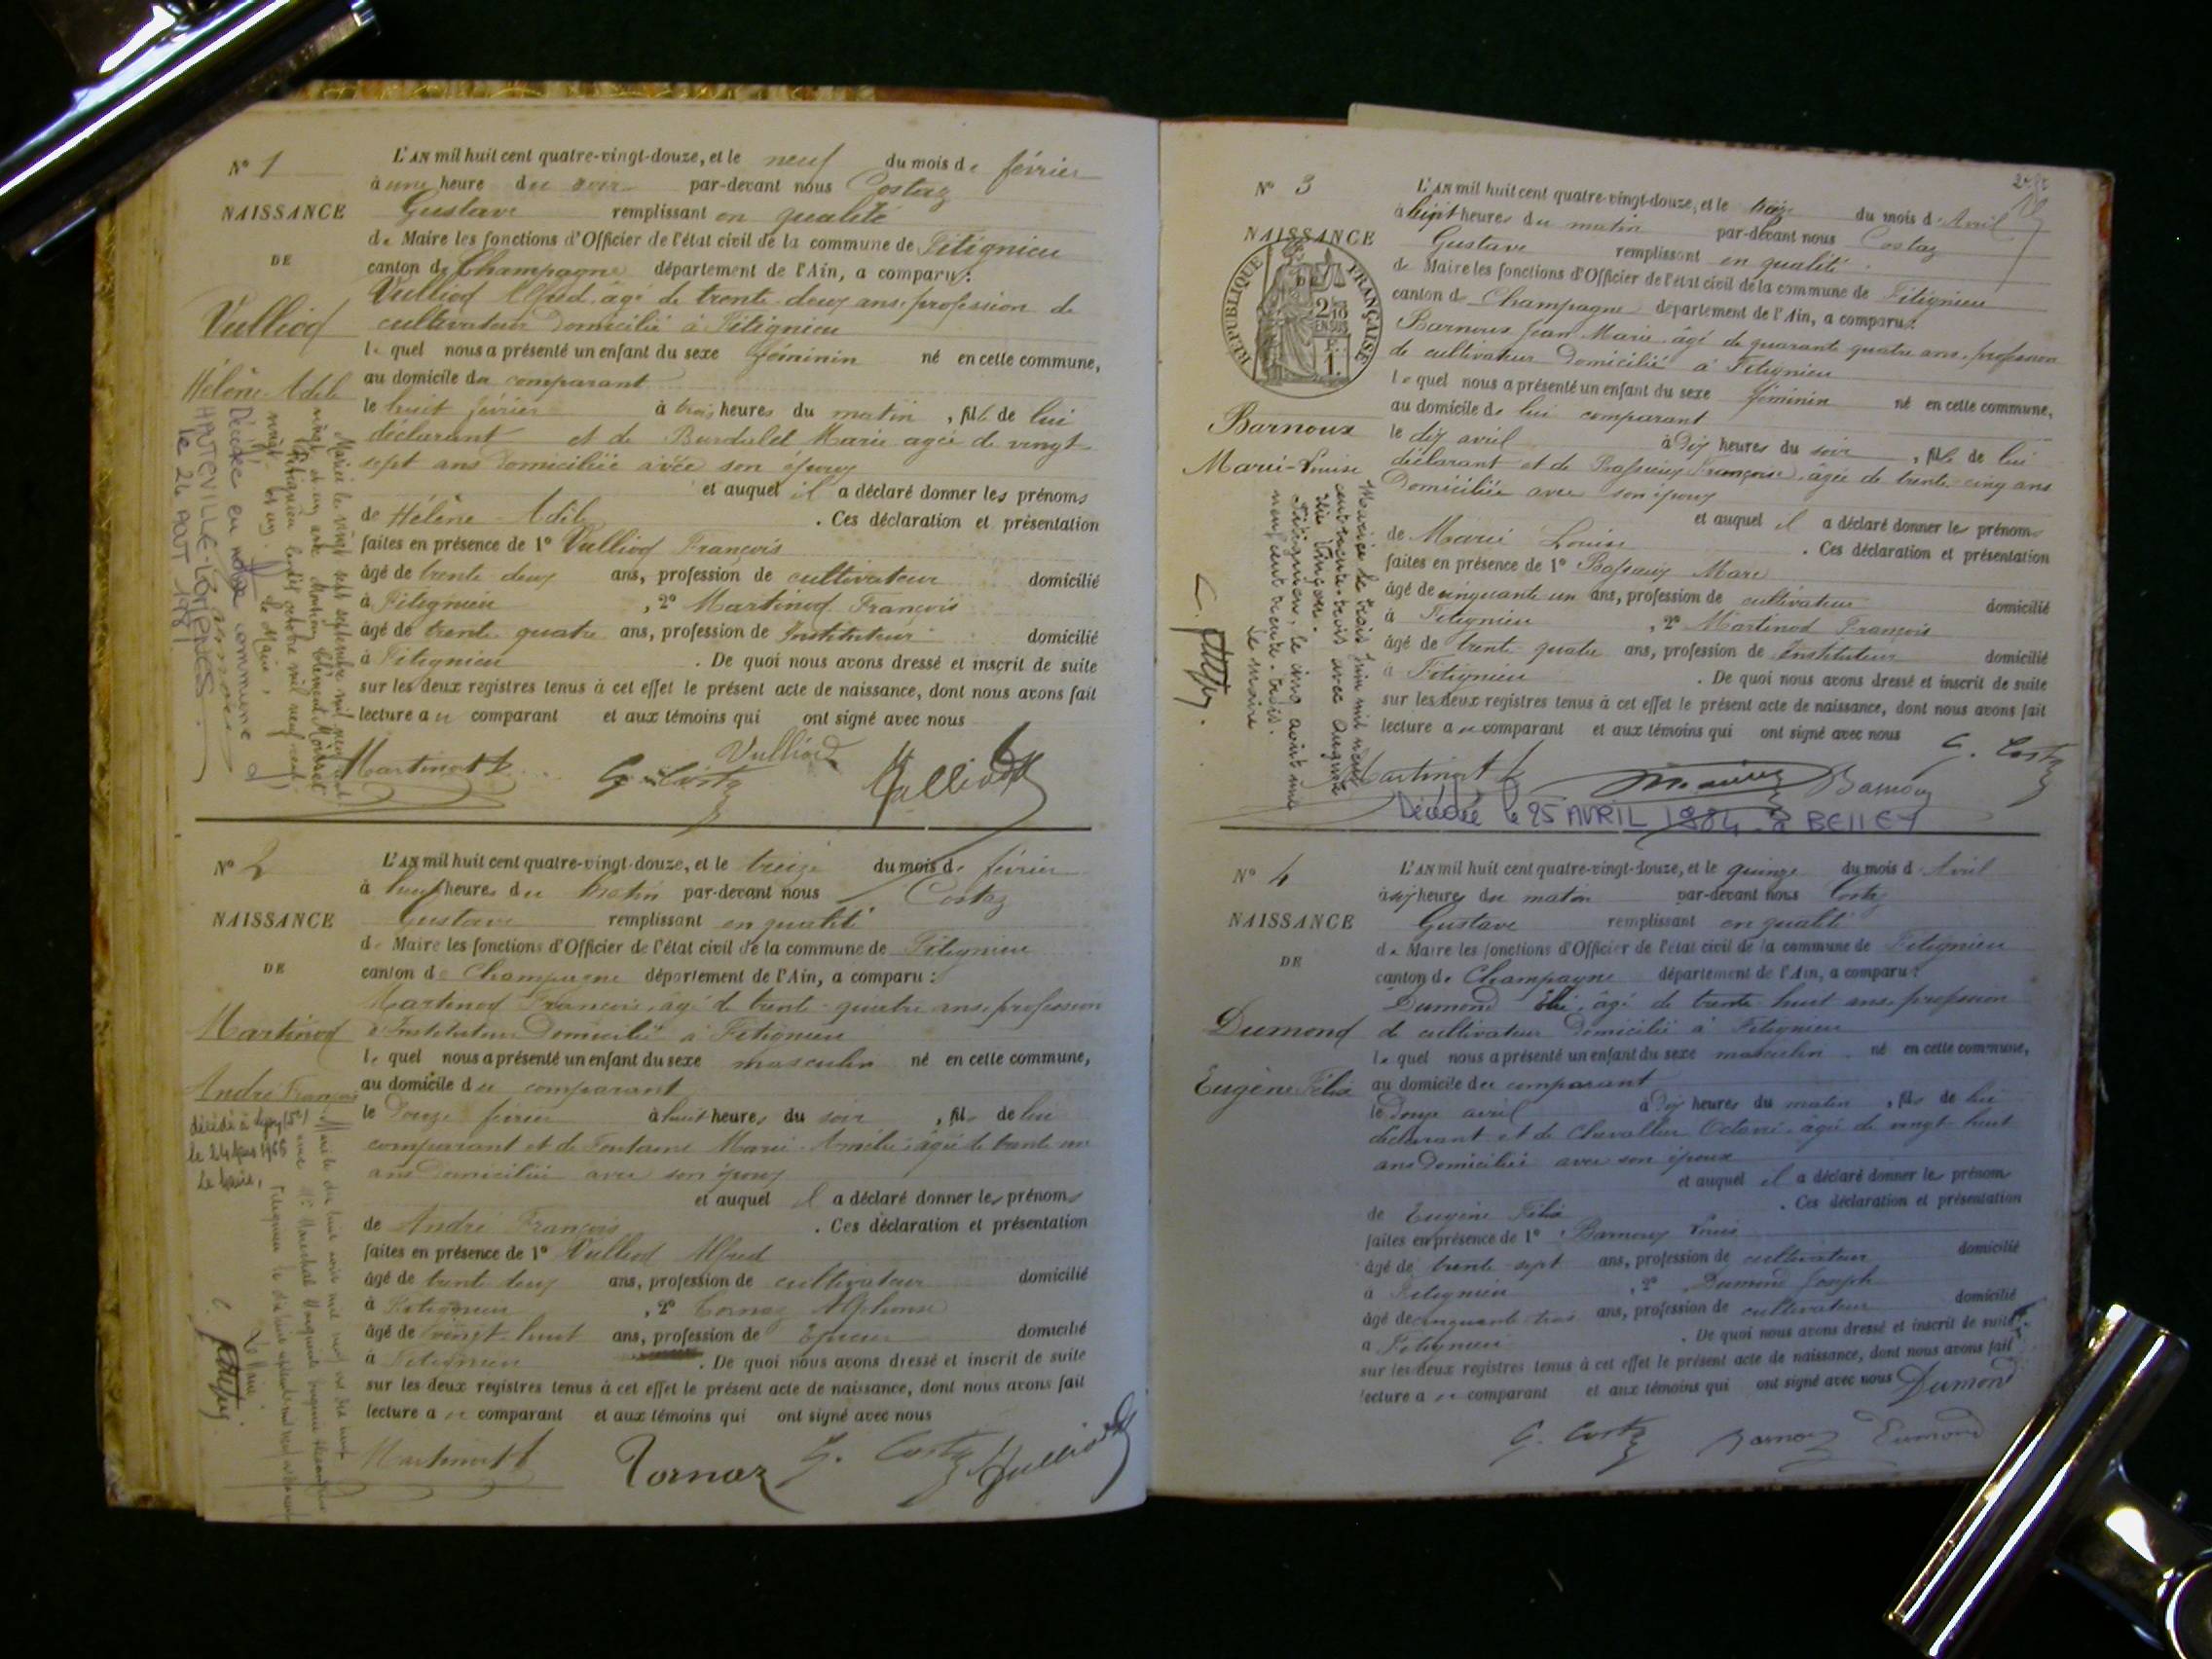 N° 1
NAISSANCE
DE
Vulliod
Hélène Adèle
L'AN mil huit cent quatre-vingt-douze, et le neuf du mois de février
à une heure du soir par-devant nous Costaz
Gustave remplissant en qualité
de Maire les fonctions d'Officier de l'état civil de la commune de Fitignieu
canton de Champagne département de l'Ain, a comparu :
Vulliod Alfred, âgé de trente-deux ans, profession de
cultivateur domicilié à Fitignieu
lequel nous a présenté un enfant du sexe féminin né en cette commune,
au domicile du comparant
le huit février à trois heures du matin, fille de lui
déclarant et de Marie agée de vingt
sept ans domiciliée avec son époux
et auquel il a déclaré donner les prénoms
de Hélène Adèle . Ces déclaration et présentation
faites en présence de 1° Vulliod François
âgé de trente deux ans, profession de cultivateur domicilié
à Fitignieu , 2° Martinod François
âgé de trente quatre ans, profession de Instituteur domicilié
à Fitignieu . De quoi nous avons dressé et inscrit de suite
sur les deux registres tenus à cet effet le présent acte de naissance, dont nous avons fait
lecture au comparant et aux témoins qui ont signé avec nous
Décédée en notre commune
HAUTEVILLE-LOMPNES
le 24 AOUT 1981
Martinod f G. Costaz Vulliod Vulliod
N° 2
NAISSANCE
DE
Martinod
André François
décédé à Lyon (5e)
Le Maire,
L'AN mil huit cent quatre-vingt-douze, et le treize du mois de février
à neuf heures du matin par-devant nous Costaz
Gustave remplissant en qualité
de Maire les fonctions d'Officier de l'état civil de la commune de Fitignieu
canton de Champagne département de l'Ain, a comparu :
Martinod François, âgé de trente-quatre ans, profession
d'Instituteur Domicilié à Fitignieu
lequel nous a présenté un enfant du sexe masculin né en cette commune,
au domicile du comparant
le Douze février à huit heures du soir , fils de lui
comparant et de Fontaine Marie Amélie, âgée de trente un
ans Domiciliée avec son époux
et auquel il a déclaré donner les prénoms
de André François . Ces déclaration et présentation
faites en présence de 1° Vulliod Alfred
âgé de trente deux ans, profession de cultivateur domicilié
à Fitignieu , 2° Tornaz Alphonse
âgé de vingt-huit ans, profession de Epicier domicilié
à Fitignieu . De quoi nous avons dressé et inscrit de suite
sur les deux registres tenus à cet effet le présent acte de naissance, dont nous avons fait
lecture au comparant et aux témoins qui ont signé avec nous
Le Maire
Martinod f Tornaz G. Costaz Vulliod
N° 3
NAISSANCE
DE
RÉPUBLIQUE FRANÇAISE
2/10 EN SUS
1 F
Barnoux
Marie-Louise
L'AN mil huit cent quatre-vingt-douze, et le treize du mois d'Avril
à huit heures du matin par-devant nous Costaz
Gustave remplissant en qualité
de Maire les fonctions d'Officier de l'état civil de la commune de Fitignieu
canton de Champagne département de l'Ain, a comparu :
Barnoux Jean Marie, âgé de quarante quatre ans, profession
de cultivateur Domicilié à Fitignieu
lequel nous a présenté un enfant du sexe féminin né en cette commune,
au domicile de lui comparant
le dix avril à Dix heures du soir , fille de lui
déclarant et de Françoise, âgée de trente-cinq ans
Domiciliée avec son époux
et auquel il a déclaré donner les prénoms
de Marie Louise . Ces déclaration et présentation
faites en présence de 1° Marc
âgé de cinquante un ans, profession de cultivateur domicilié
à Fitignieu , 2° Martinod François
âgé de trente-quatre ans, profession de Instituteur domicilié
à Fitignieu . De quoi nous avons dressé et inscrit de suite
sur les deux registres tenus à cet effet le présent acte de naissance, dont nous avons fait
lecture au comparant et aux témoins qui ont signé avec nous
Mariée le trois juin mil neuf
cent trente-trois avec Auguste
Fitignieu, le cinq août mil
neuf cent trente-trois.
Le maire
Martinod f Barnoux G. Costaz
Décédée le 25 AVRIL 1984 à BELLEY
N° 4
NAISSANCE
DE
Dumond
Eugène Félix
L'AN mil huit cent quatre-vingt-douze, et le quinze du mois d'Avril
à six heures du matin par-devant nous Costaz
Gustave remplissant en qualité
de Maire les fonctions d'Officier de l'état civil de la commune de Fitignieu
canton de Champagne département de l'Ain, a comparu :
Dumond Elie, âgé de trente huit ans, profession
de cultivateur Domicilié à Fitignieu
lequel nous a présenté un enfant du sexe masculin né en cette commune,
au domicile du comparant
le Douze avril à Dix heures du matin , fils de lui
déclarant et de Chevallier Octavie âgée de vingt-huit
ans Domiciliée avec son époux
et auquel il a déclaré donner les prénoms
de Eugène Félix . Ces déclaration et présentation
faites en présence de 1° Barnoux Louis
âgé de trente sept ans, profession de cultivateur domicilié
à Fitignieu , 2° Dumond Joseph
âgé de cinquante trois ans, profession de cultivateur domicilié
à Fitignieu . De quoi nous avons dressé et inscrit de suite
sur les deux registres tenus à cet effet le présent acte de naissance, dont nous avons fait
lecture au comparant et aux témoins qui ont signé avec nous Dumond
G. Costaz Barnoux Dumond